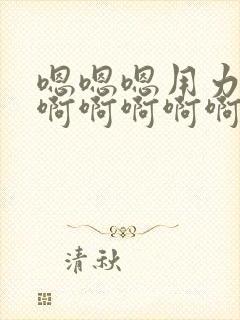 嗯嗯嗯用力
啊啊啊啊啊
清秋